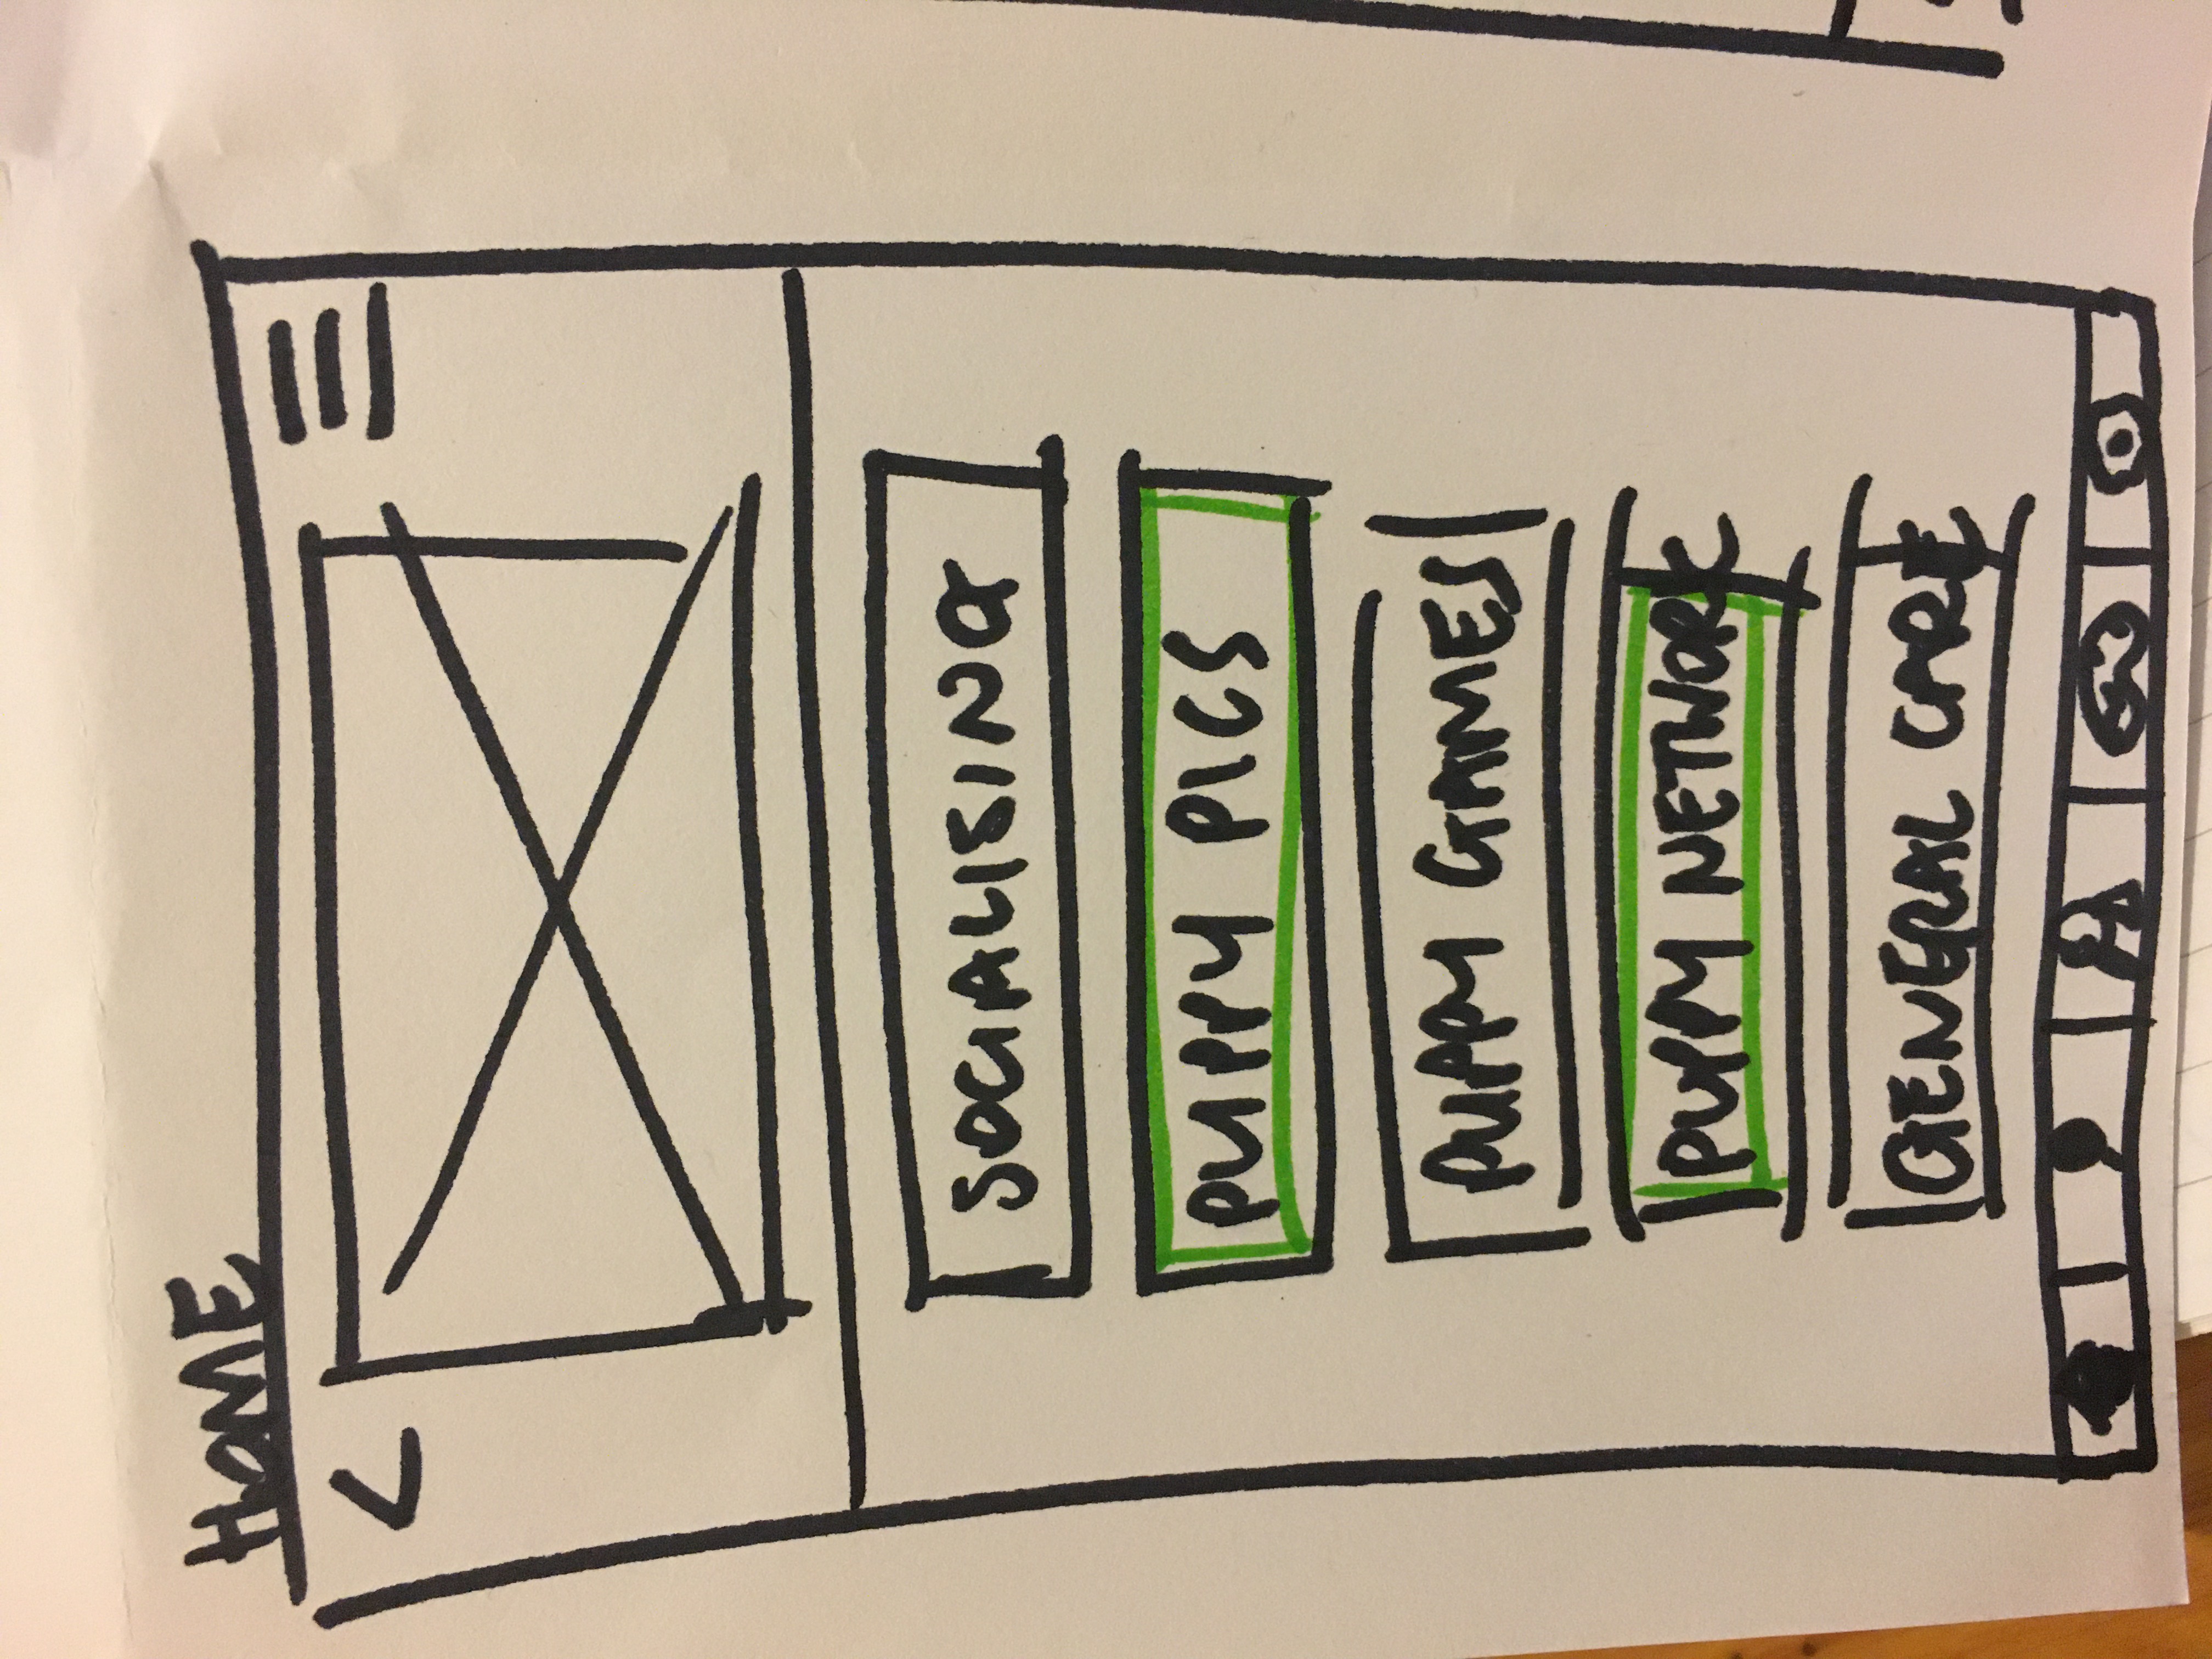 HOME
SOCIALISING
PUPPY PICS
PUPPY GAMES
PUPPY NETWORK
GENERAL CARE